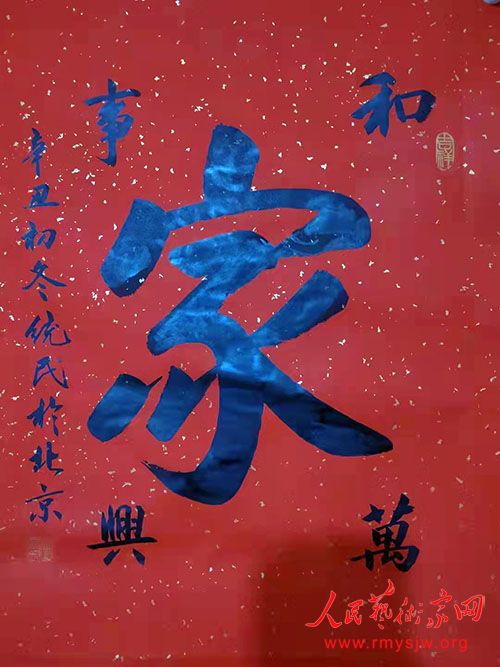 家
和
萬
事
興
辛丑初冬統民於北京
吉祥
人民艺术家网
www.rmysjw.org